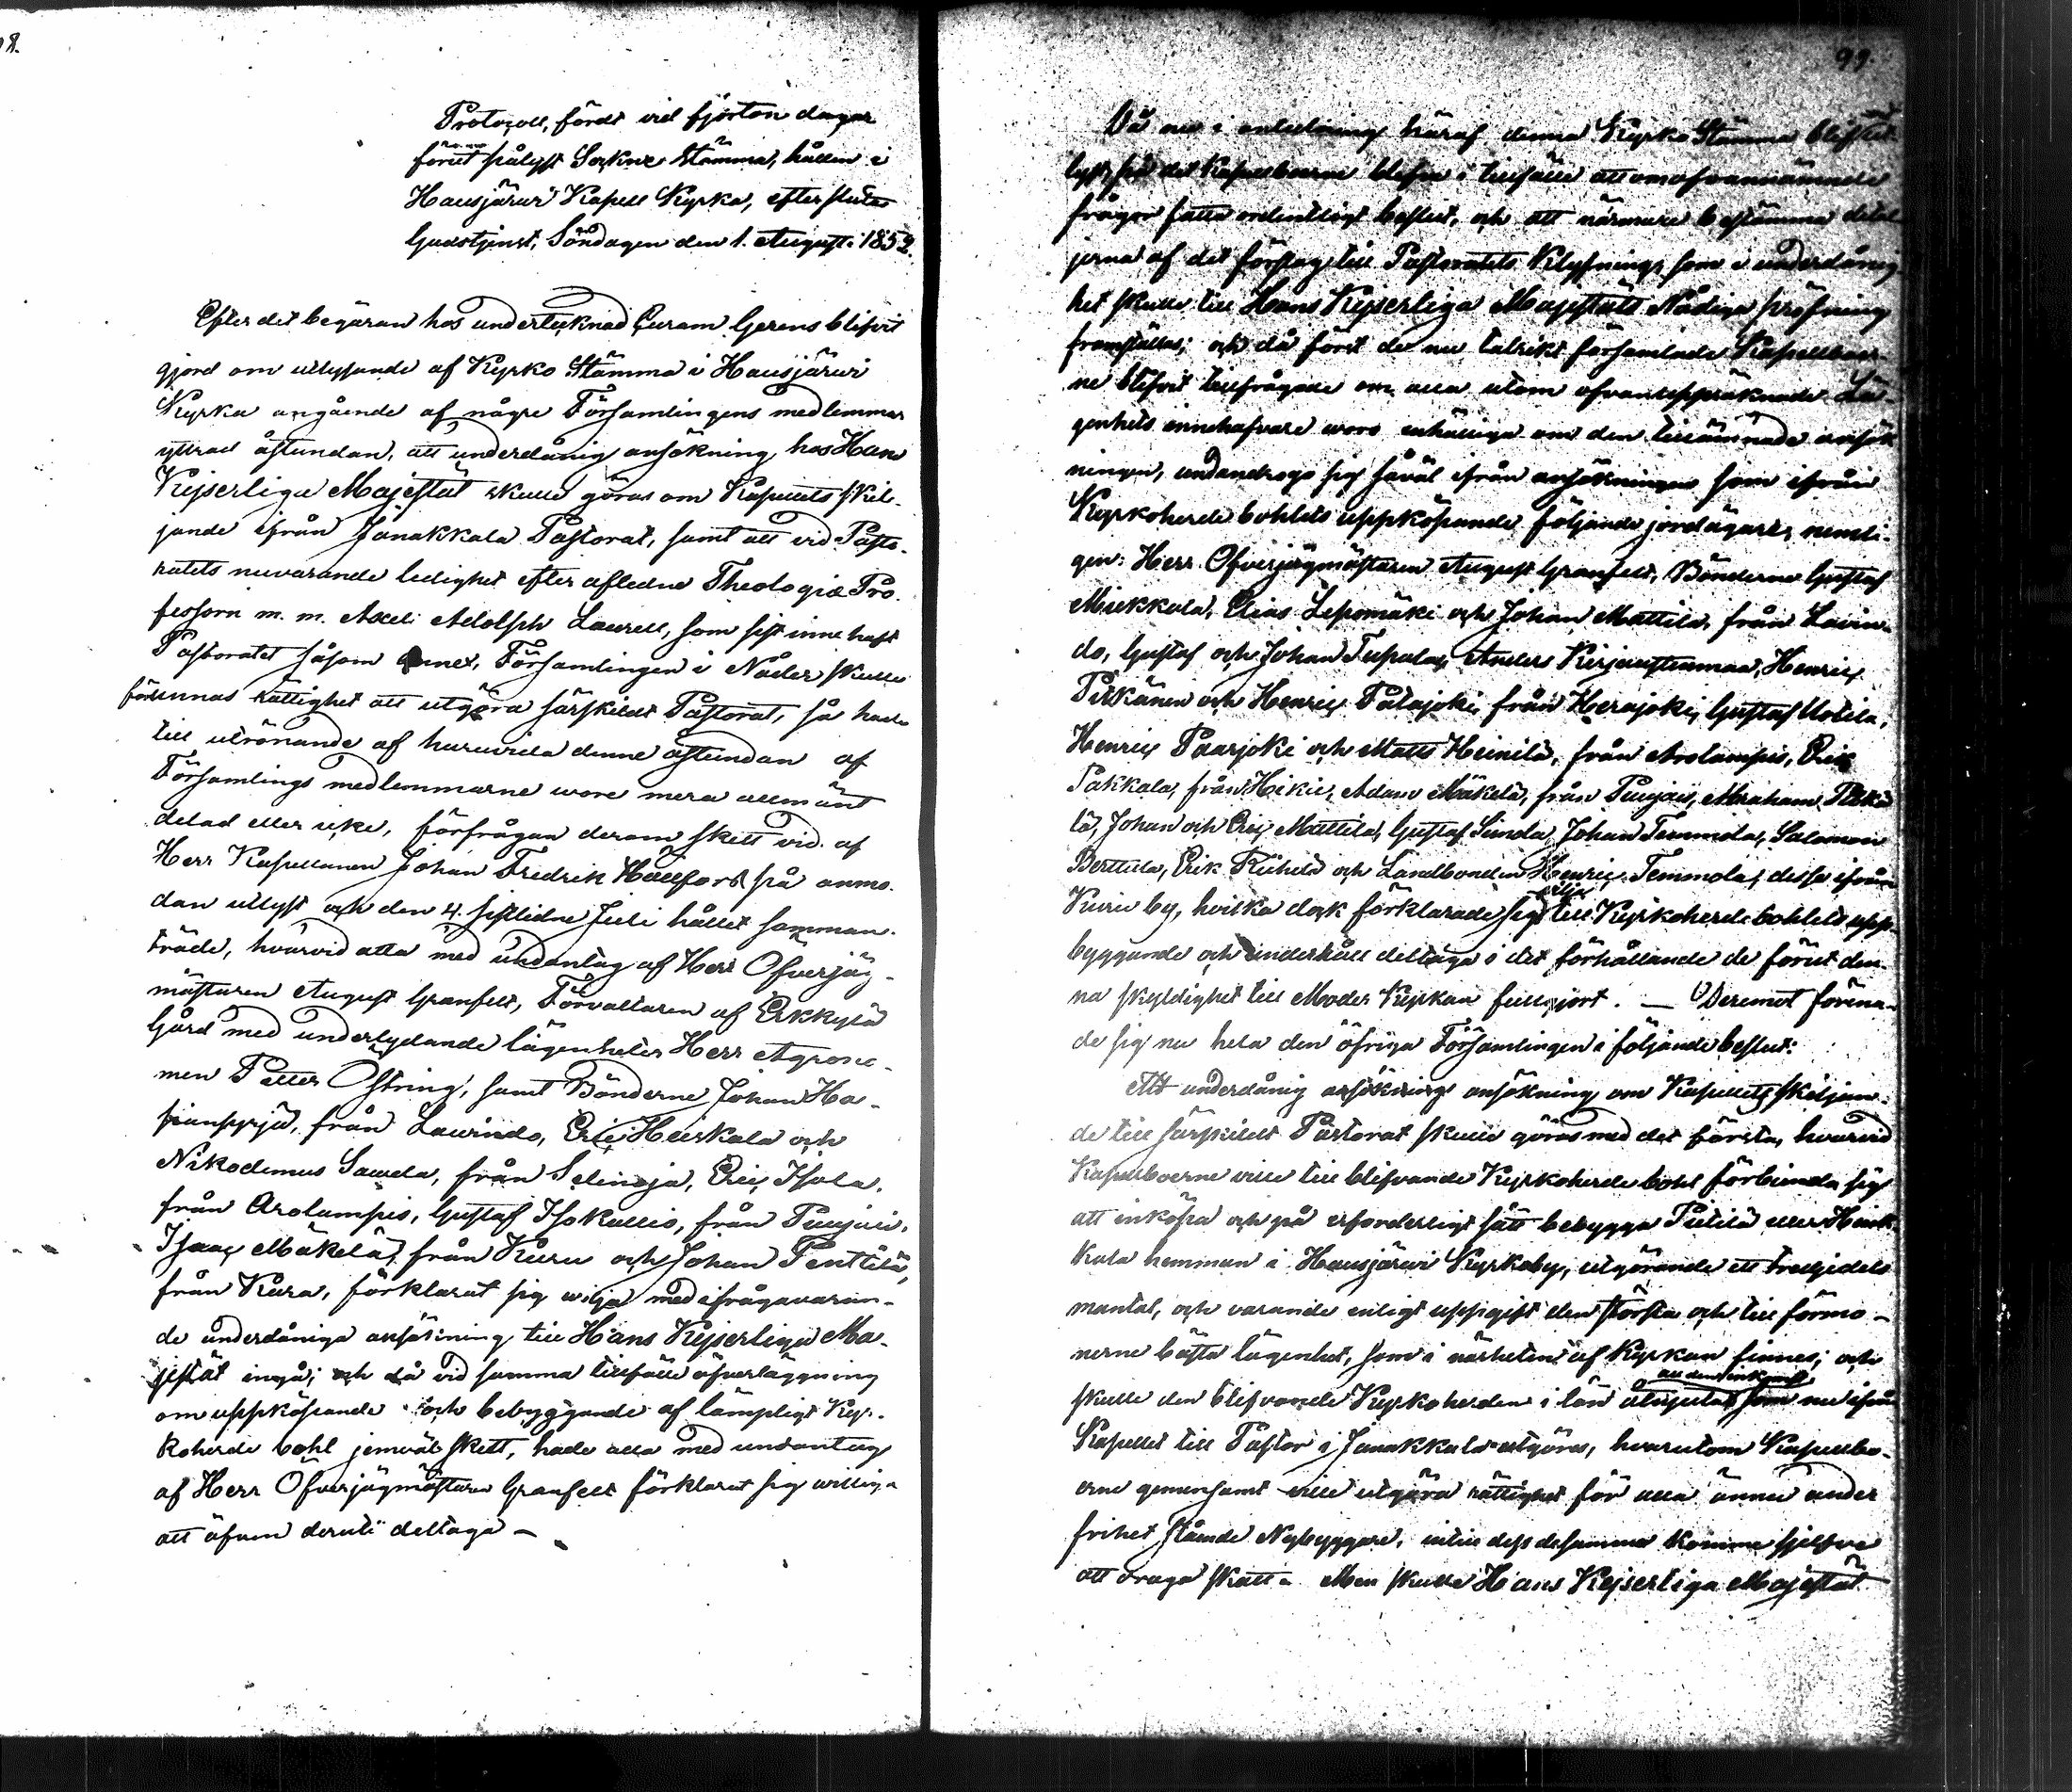 98.
Protocoll, fördt vid fjorton dagar
förut pålyst Sockne Stämma, hållen i
Hausjärwi Kapell Kyrka, efter slutad
Gudstjenst, Söndagen den 1. Augusti 1852.
Efter det begäran hos undertecknad Curam Gerens blifvit
gjord om utlysande af Kyrko Stämma i Hausjärwi
Kyrka angående af någre Församlingens medlemmar
yttrad åstundan, att underdånig ansökning hos Hans
Kejserliga Majestät skulle göras om Kapellets skil-
jande ifrån Janakkala Pastorat, samt att vid Pasto-
ratets nuvarande ledighet efter aflidne Theologiæ Pro-
fessorn m. m. Axel Adolph Laurell, som sist innehaft
Pastoratet såsom annex, Församlingen i Nåder skulle
förunnas rättighet att utgöra särskildt Pastorat, så hade
till utrönande af huruvida denne åstundan af
Församlings medlemmarne wore mera allmänt
delad eller icke, förfrågan derom skett vid af
Herr Kapellanen Johan Fredrik Hällfors på anmo-
dan utlyst och den 4. sistlidne Juli hållet samman-
träde, hvarvid alla med undantag af Herr Öfverjäg-
mästaren August Granfelt, Förvaltaren af Erkkylä
Gård med underlydande lägenheter Herr Agrono-
men Petter Östring, samt Bönderne Johan Ha-
pianpyyä, från Lavindo, Eric Huskala och
Nikodemus Sawela, från Selinoja, Eric Isola,
från Arolampis, Gustaf Isokallio, från Punjais,
Isaac Mäkelä, från Kuru och Johan Penttilä,
från Kura, förklarat sig wilja med ifrågavaran-
de underdåniga ansökning till Hans Kejserliga Ma-
jestät ingå; och då vid samma tillfälle öfverläggning
om uppköpande och bebyggande af lämpligt Kyr-
koherde bohl jemväl skett, hade alla med undantag
af Herr Öfverjägmästaren Granfelt förklarat sig willige
att äfven deruti deltaga –
99.
Då nu i anledning häraf denna Kyrko Stämma blifvit ut-
lyst, på det Kapellboerne blefve i tillfälle att om ofvannämnde
frågor fatta ordentligt beslut, och att närmare bestämma detal-
jerna af det förslag till Pastoratets Klyfning, som i underdånig-
het skulle till Hans Kejserliga Majestäts Nådiga pröfning
framställas; och då först de nu talrikt församlade Kapellboer-
ne blifvit tillfrågade om alla utom ofvanuppräknade Lä-
genhets innehafvare woro enhälliga om den tillämnade ansök-
ningen, undandrogo sig såväl ifrån ansökningen som ifrån
Kyrkoherde bohlets uppköpande följande jordägare, nemli-
gen: Herr Öfverjägmästaren August Granfelt, Bönderne Gustaf
Mickkola, Elias Lepomäki och Johan Mattila, från Lavin-
do, Gustaf och Johan Tupala, Anders Kirjaustenmaa, Henric
Pirkänen och Henric Palajoki, från Herajoki, Gustaf Uotila,
Henric Paarjoki och Matts Heinilä, från Arolampis, Eric
Pakkala, från Hikie, Adam Mäkelä, från Punjais, Abraham
lä, Johan och Eric Mattila, Gustaf Sunda, Johan Temmola, Salomon
Berttula, Erik Riihelä och Landbonden Henric Temmola, desse ifrån
Kuru by, hvilka dock förklarade sig wilja till Kyrkoherde bohlets upp-
byggande och underhåll deltaga i det förhållande de förut den-
na skyldighet till Moder Kyrkan fullgjort. — Deremot förena-
de sig nu hela den öfriga Församlingen i följande beslut:
Att underdånig ansökning ansökning om Kapellets skiljan-
de till särskildt Pastorat skulle göras med det första, hvarvid
Kapellboerne wille till blifvande Kyrkoherde bohl förbinda sig
att inköpa och på erforderligt sätt bebygga Pietilä eller Hank-
kala hemman i Hausjärwi Kyrkoby, utgörande ett tredjedels
mantal, och varande enligt uppgift den största och till förmo-
nerne bästa lägenhet, som i närheten af Kyrkan finnes; och
skulle den blifvande Kyrkoherden i lön åtnjuta all den inkomst som nu ifrån
Kapellet till Pastor i Janakkala utgöres, hvarutom Kapellbo-
erne gemensamt wille utgöra rättighet för alla ännu under
frihet stående Nybyggare, intill dess desamma komme sjelfve
att draga skatt. Men skulle Hans Kejserliga Majestät